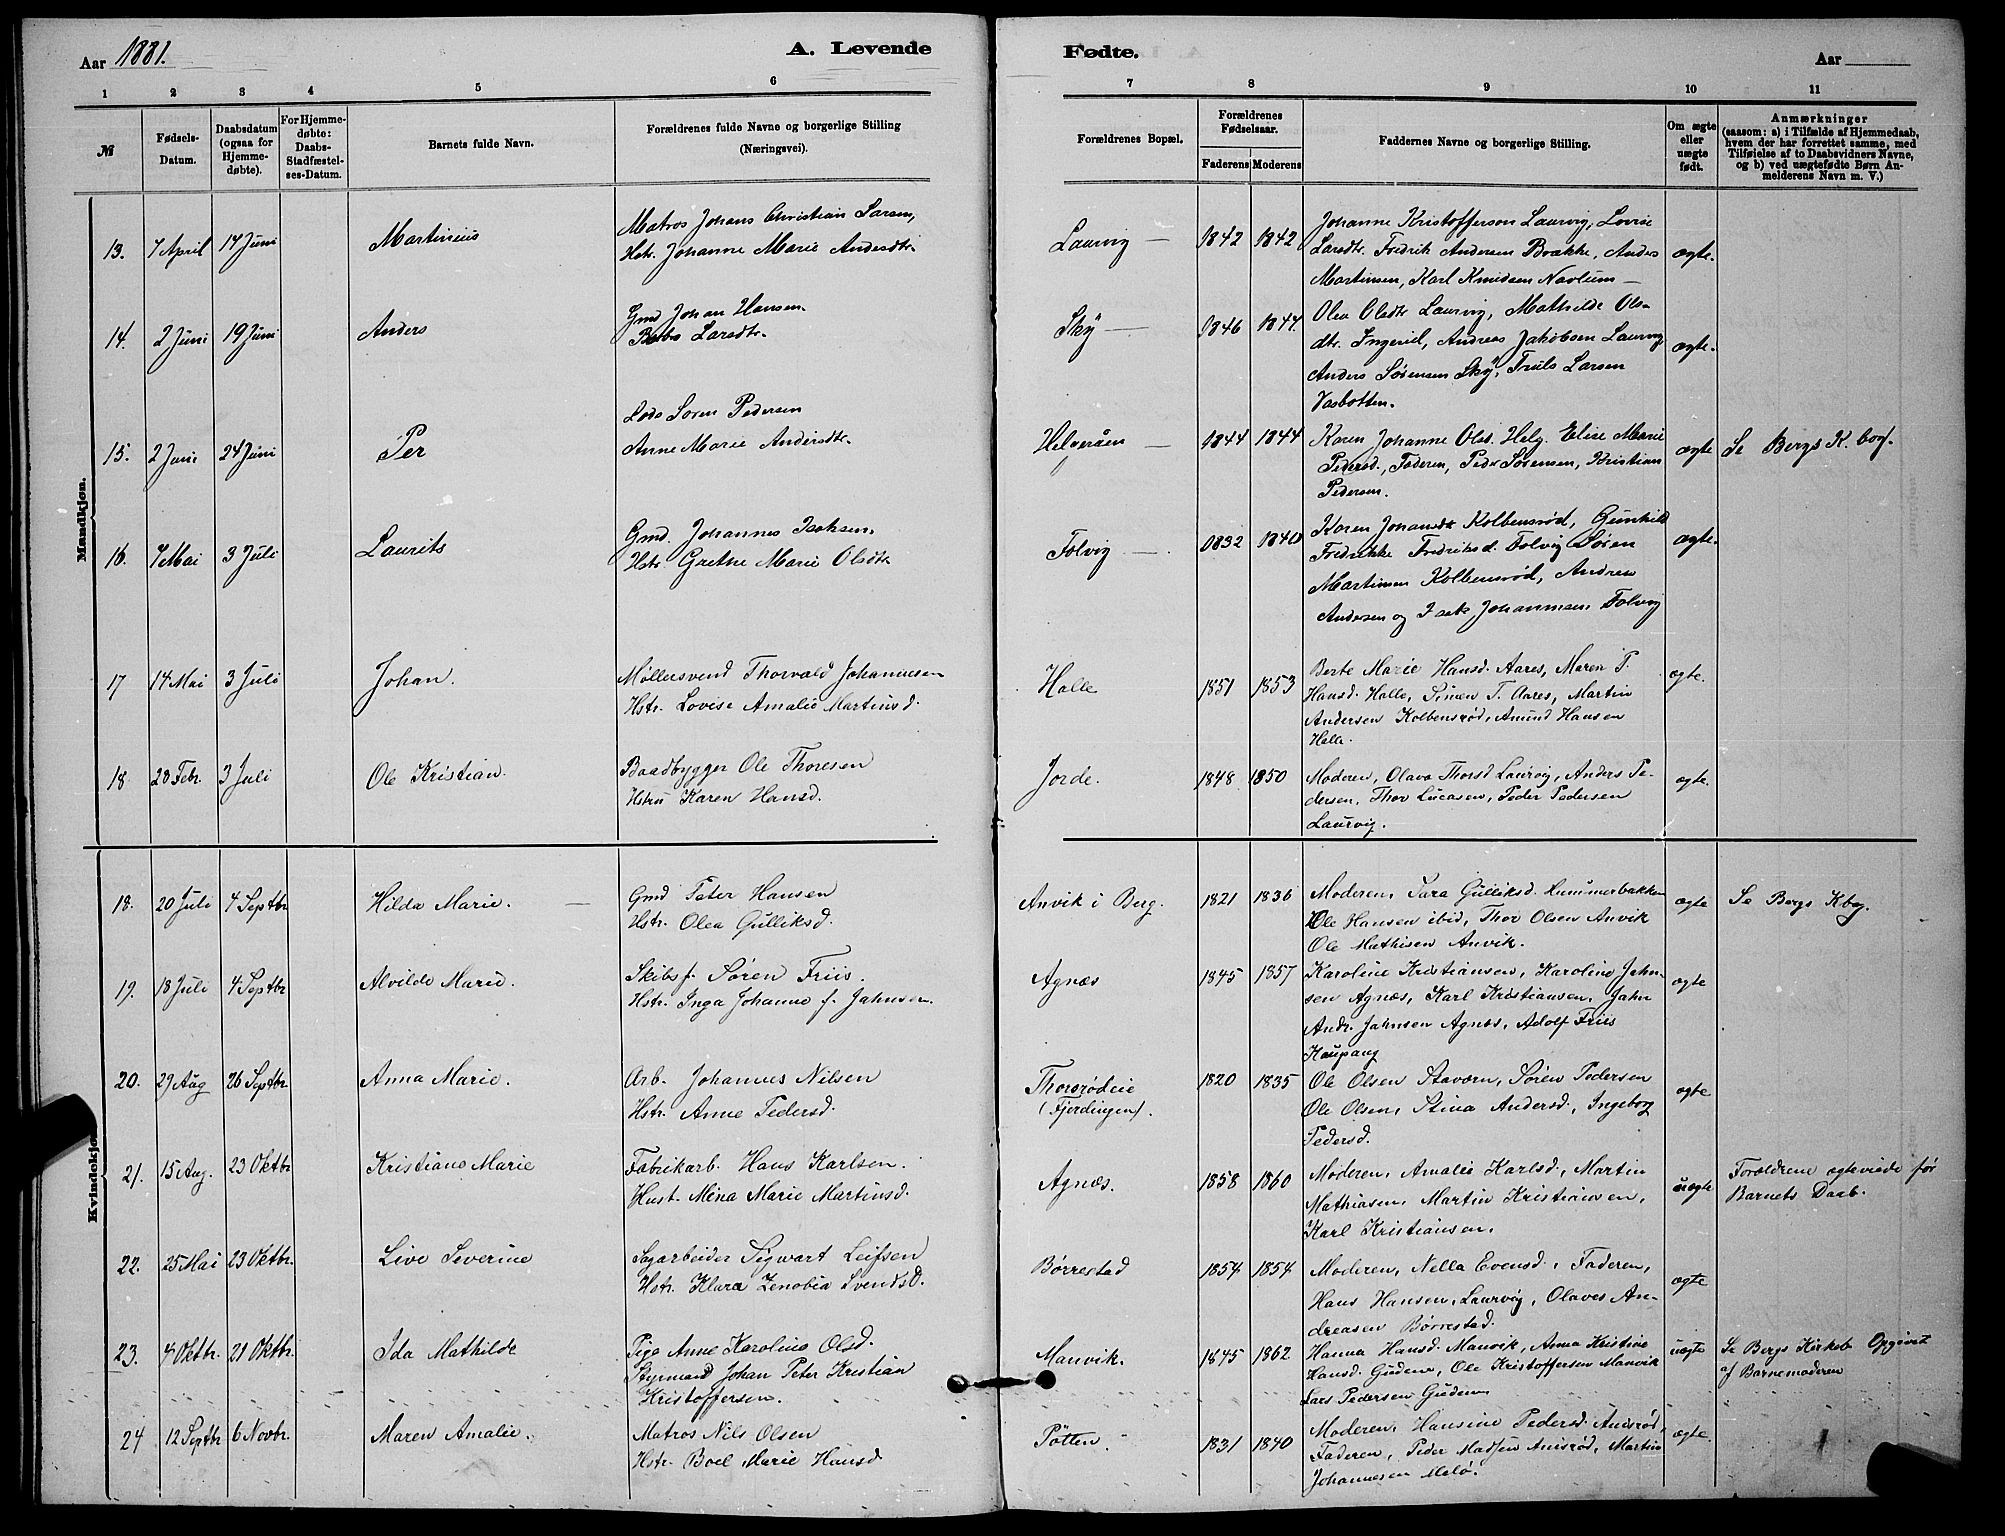 Aar 1881.
A. Levende
Fødte.
Aar
1 2 3 4 5 6
7 8 9 10 11
№
Fødsels-
Datum.
Daabsdatum
(ogsaa for
Hjemme-
døbte).
For Hjemme-
døbte:
Daabs-
Stadfæstel-
ses-Datum.
Barnets fulde Navn.
Forældrenes fulde Navne og borgerlige Stilling
(Næringsvei).
Forældrenes Bopæl.
Forældrenes
Fødselsaar.
Faderens Moderens
Faddernes Navne og borgerlige Stilling.
Om ægte
eller
uægte
født.
Anmærkninger
(saasom: a) i Tilfælde af Hjemmedaab,
hvem der har forrettet samme, med
Tilføielse af to Daabsvidners Navne,
og b) ved uægtefødte Børn An-
melderens Navn m. V.)
Mandkjøn.
13. 7 April 14 Juni Martinius
Matros Johans Christian Larsen,
Hstr. Johanne Marie Andersdtr.
Laurvig — 1842 1842
Johanne Kristofferson Laurvig, Lovise
Larsdtr. Fredrik Andersen Brække, Anders
Martinsen, Karl Knudsen Navlum —
ægte.
14. 2 Juni 19 Juni Anders
Gmd Johan Hansen.
Larsdtr.
Sky — 1846 1844.
Olea Olsdtr Laurvig, Mathilde Ols-
dtr. Ingeriel, Andreas Jakobsen Laurvig
Anders Sørensen Sky, Truls Larsen
Vasbotten.
ægte.
15. 2 Juni 24 Juni Per
Lods Soren Pedersen
Anne Marie Andersdtr.
Helgeråen — 1844 1844
Karen Johanne Ols. Helg. Elise Marie
Pedersd., Faderen, Peder Sørensen, Kristian
Pedersen.
ægte Se Bergs K. bog.
16. 7 Mai 3 Juli Laurits
Gmd. Johannes Isaksen.
Hstr Grethe Marie Olsdtr
Folvig — 1832 1840
Karen Johansdt Kolbensrød, Gunhild
Fredrikke Fredriksd. Folvig Søren
Martinsen Kolbensrød, Andreas
Andersen og Isak Johannesen Folvig
ægte.
17 14 Mai 3 Juli Johan.
Møllersvend Thorvald Johannesen
Hstr. Lovise Amalie Martinsd.
Halle 1851 1853
Berte Marie Hansd. Aares, Maren T.
Hansd. Halle, Simen T. Aares, Martin
Andersen Kolbensrød, Amund Hansen
Halle.
ægte.
18 28 Febr. 3 Juli Ole Kristian.
Baadbygger Ole Thoresen
Hstru Karen Hansd.
Jorde. 1848 1850
Moderen, Olava Thorsd Laurvig, Anders Pe-
dersen, Thor Lucasen, Peder Pedersen
Laurvig.
ægte.
Kvindekjøn.
18. 20 Juli 4 Septbr Hilda Marie. —
Gmd Peter Hansen
Hstr. Olea Gulliksd.
Anvik i Berg. 1821 1836
Moderen, Sara Gulliksd. Hummerbakken
Ole Hansen ibid, Thor Olsen Anvik
Ole Mathisen Anvik.
ægte Se Bergs Kbog.
19. 18 Juli 4 Septbr Alvilde Marie.
Skibsf. Søren Friis.
Hstr. Inga Johanne f. Jahnsen.
Agnæs 1845 1857
Karoline Kristiansen, Karoline Jahn-
sen Agnæs, Karl Kristiansen, Jahn
Andr. Jahnsen Agnæs, Adolf Friis
Kaupang
ægte
20. 29 Aug 26 Septbr. Anna Marie.
Arb. Johannes Nilsen
Hstr. Anne Pedersd.
Thorsrødeie
(Fjerdingen). 1820 1835
Ole Olsen Staværn, Søren Pedersen
Ole Olsen, Stina Andersd., Ingeborg
Pedersd.
ægte
21. 15 Aug. 23 Oktbr Kristiane Marie
Fabrikarb. Hans Karlsen.
Hust. Mina Marie Martinsd.
Agnæs. 1858 1860
Moderen, Amalie Karlsd., Martin
Mathiasen, Martin Kristiansen,
Karl Kristiansen.
uægte
Forældrene ægteviede før
Barnets Daab.
22. 25 Mai 23 Oktbr. Live Severine
Sagarbeider Sigwart Leifsen
Hstr. Klara Zenobia Svendsd.
Børrestad 1854 1854
Moderen, Nella Evensd., Faderen,
Hans Hansen, Laurvig, Olaves An-
dreasen Børrestad.
ægte
23. 4 Oktbr. 21 Oktbr. Ida Mathilde
Pige Anne Karoline Olsd.
Styrmand Johan Peter Kristian
Kristoffersen.
Manvik. 1845 1862
Hanna Hansd. Manvik, Anna Kristine
Hansd. Guden, Ole Kristoffersen Manvik
Lars Pedersen Guden
uægte
Se Bergs Kirkeb Opgivet
af Barnemoderen
24 12 Septbr 6 Novbr. Maren Amalie.
Matros Nils Olsen
Hstr. Boel Marie Hansd
Pötten. 1831 1840
Moderen, Hansine Pedersd. Anisrød,
Faderen, Peder Madsen Anisrød, Martin
Johannesen Melø.
ægte.